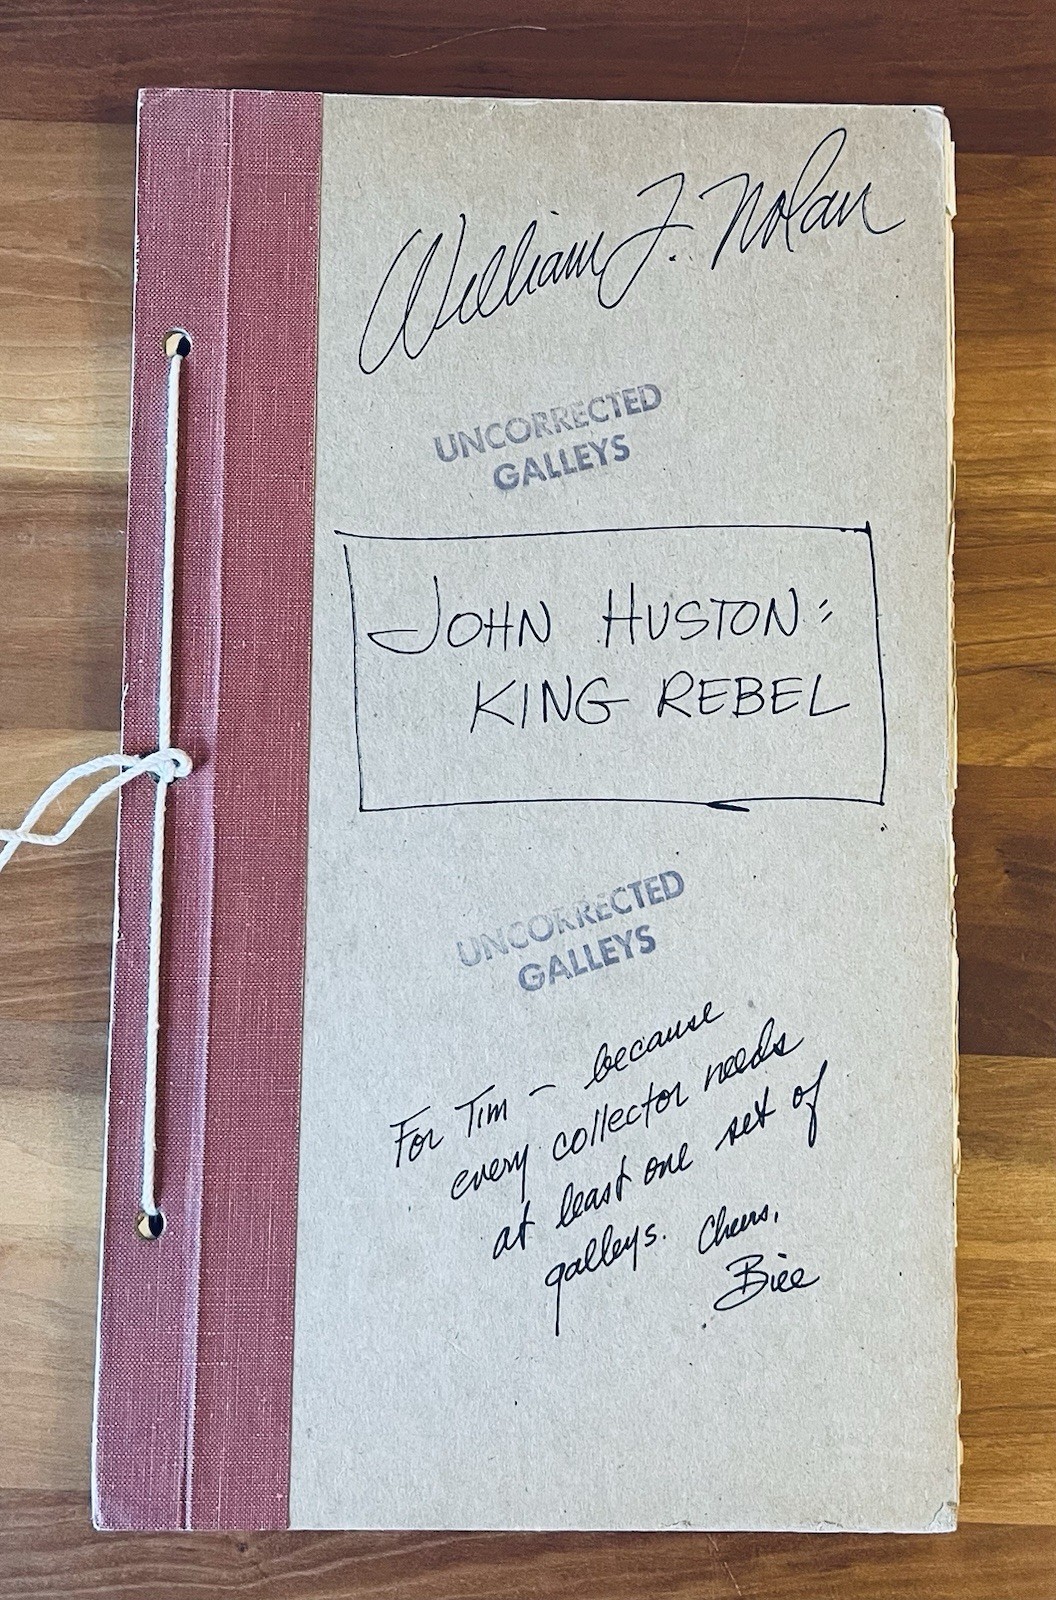 William F. Nolan
UNCORRECTED
GALLEYS
JOHN HUSTON:
KING REBEL
UNCORRECTED
GALLEYS
For Tim – because
every collector needs
at least one set of
galleys. Cheers,
Bill